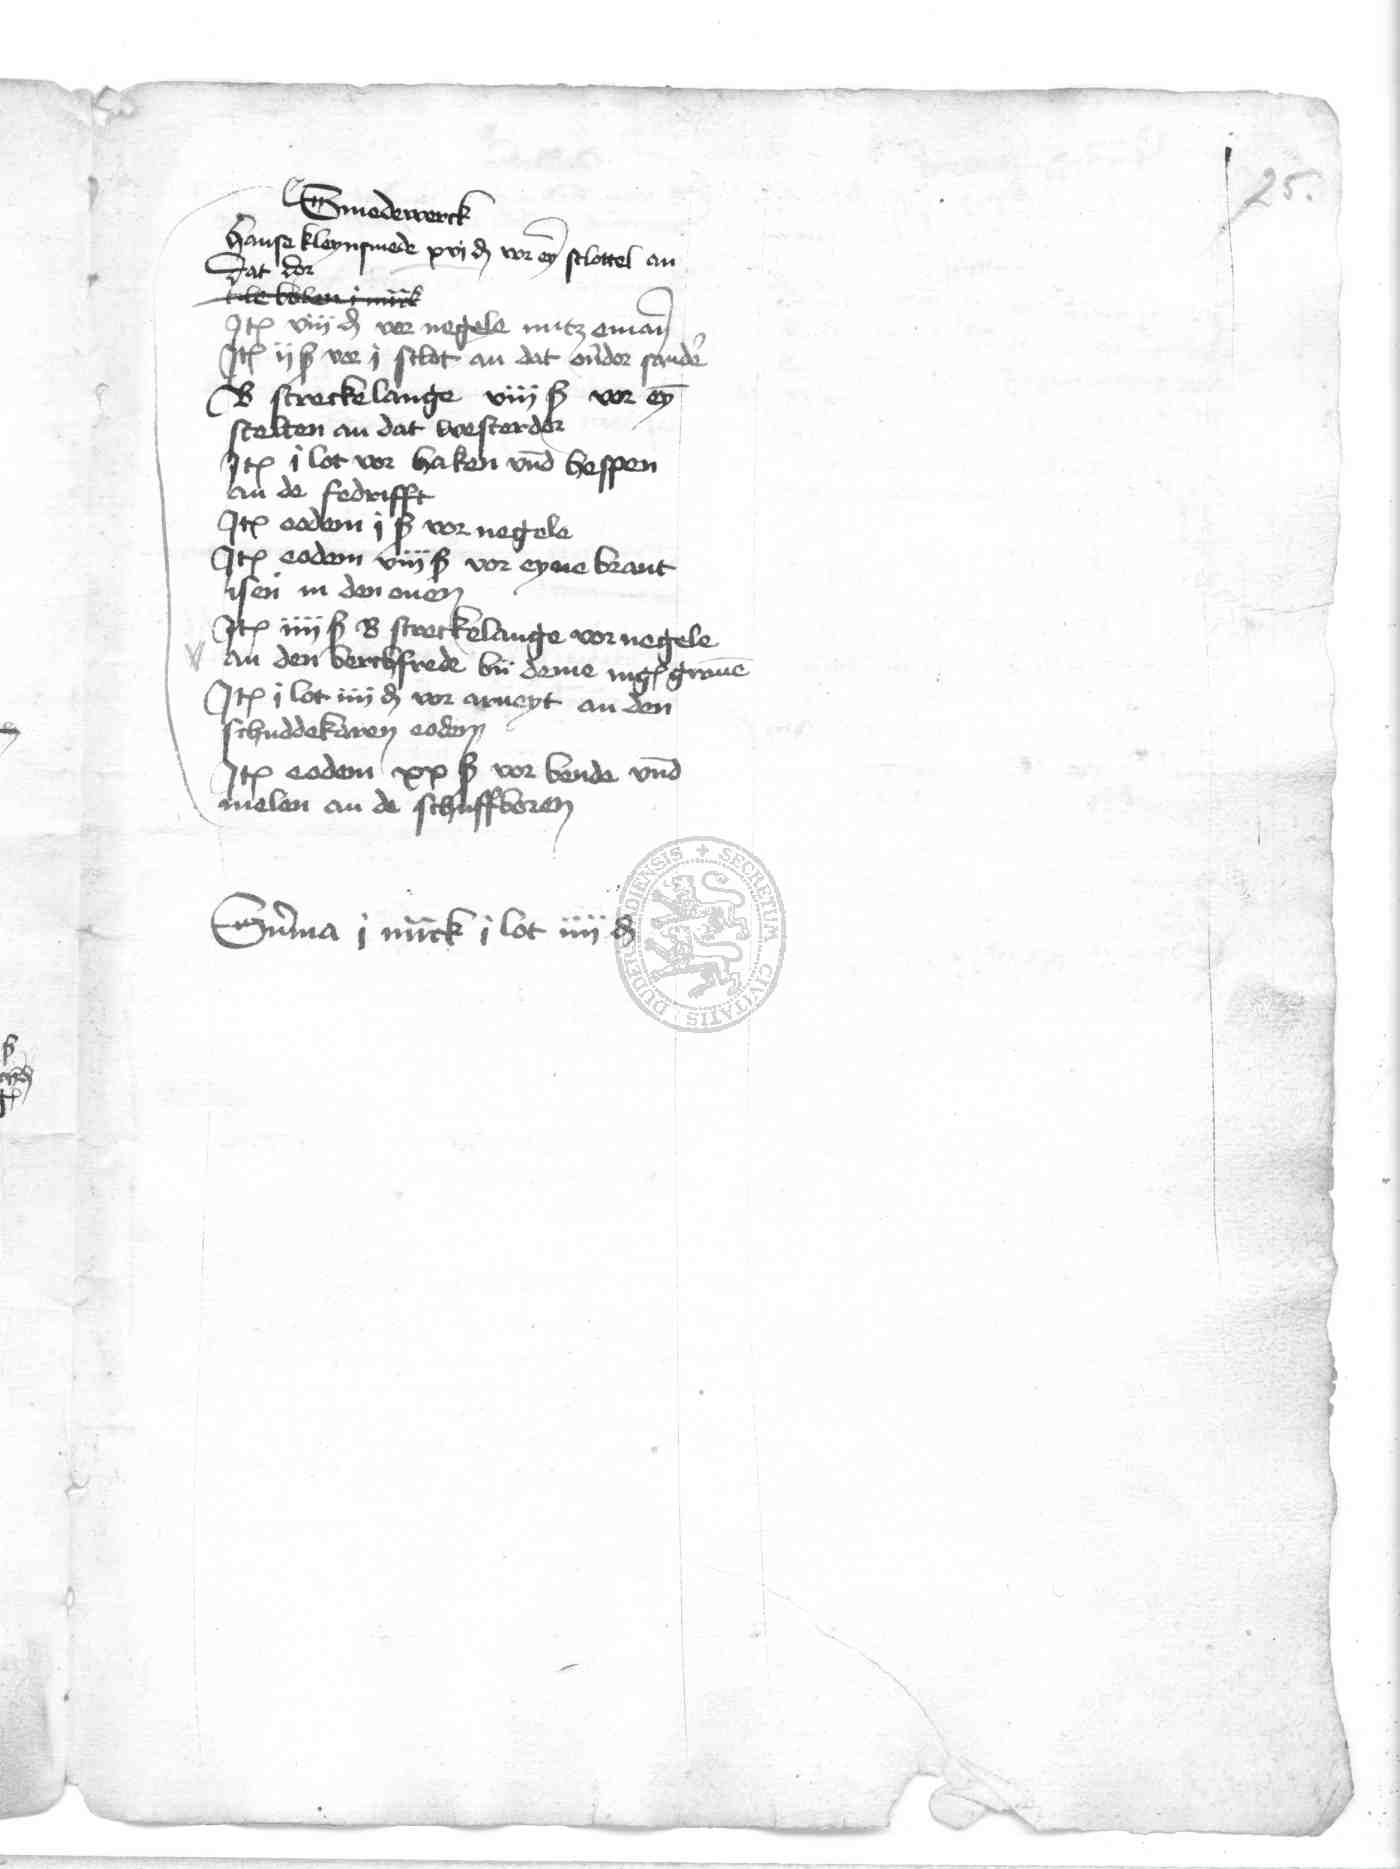 25.
Smedewerck
Hanse kleynsmede xvj d vor eyn slottel an
dat dor
tile boken j mrck
Itē viij d vor negele
Itē ij ß vor j slot an dat
B streckelange viij ß vor ey̅
stelten an dat westerdor
Itē j lot vor haken vn̅d hespen
an de fedrifft
Itē eodem j ß vor negele
Itē eodem viij ß vor eyne brant
isen in den ouen
Itē iiij ß B streckelange vor negele
an den berchfrede bii deme
Itē j lot iiij d vor arueyt an den
schuddekaren eodem
Itē eodem xx ß vor bende vn̅d
nelen an de schuffboren
Sum̅a j mrck j lot iiij d
SECRETUM CIVITATIS DUDERSTADIENSIS